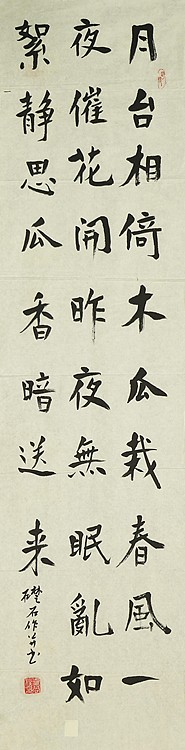 月台相倚木瓜栽春風一
夜催花開昨夜無眠亂如
絮静思瓜香暗送来
礎石作并书